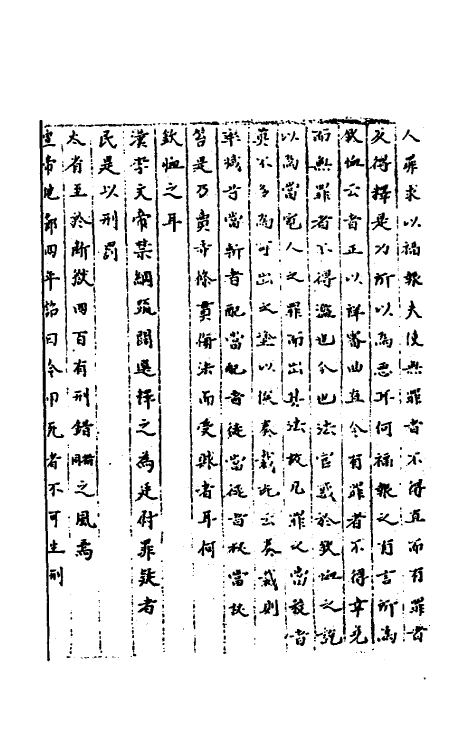 人罪求以禍報夫使無罪者不得直而有罪者
反得釋是乃所以為惡耳何福報之有言所為
欽恤云者正以詳審曲直令有罪者不得幸免
而無罪者不得濫也今也法官惑於欽恤之說
以為當寬人之罪而出其法故凡罪之當殺者
莫不多為可出之塗以俟奏裁既云奏裁則
率減等當斬者配當配者徒當徒者杖當杖
笞是乃賣弄條貫侮法而受賕者耳何
欽恤之耳
漢孝文帝禁網疏闊選張釋之為廷尉罪疑者
民是以刑罰
太省至於斷獄四百有刑錯之風焉
宣帝地節四年詔曰令甲死者不可生刑